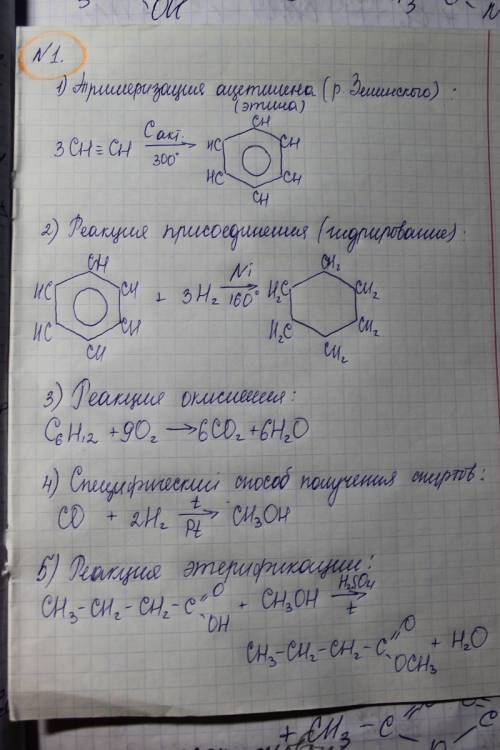 OH
№1.
1) Тримеризация ацетилена (р. Зелинского):
(этина)
3CH≡CH C акт. 300° → CH CH CH CH HC HC
2) Реакция присоединения (гидрирование):
CH CH CH CH HC HC + 3H₂ Ni 160° → CH₂ CH₂ CH₂ CH₂ H₂C H₂C
3) Реакция окисления:
C₆H₁₂ + 9O₂ → 6CO₂ + 6H₂O
4) Специфический способ получения спиртов:
CO + 2H₂ t Pt → CH₃OH
5) Реакция этерификации:
CH₃-CH₂-CH₂-C=O OH + CH₃OH H₂SO₄ t →
CH₃-CH₂-CH₂-C=O OCH₃ + H₂O
+ CH₃ - C